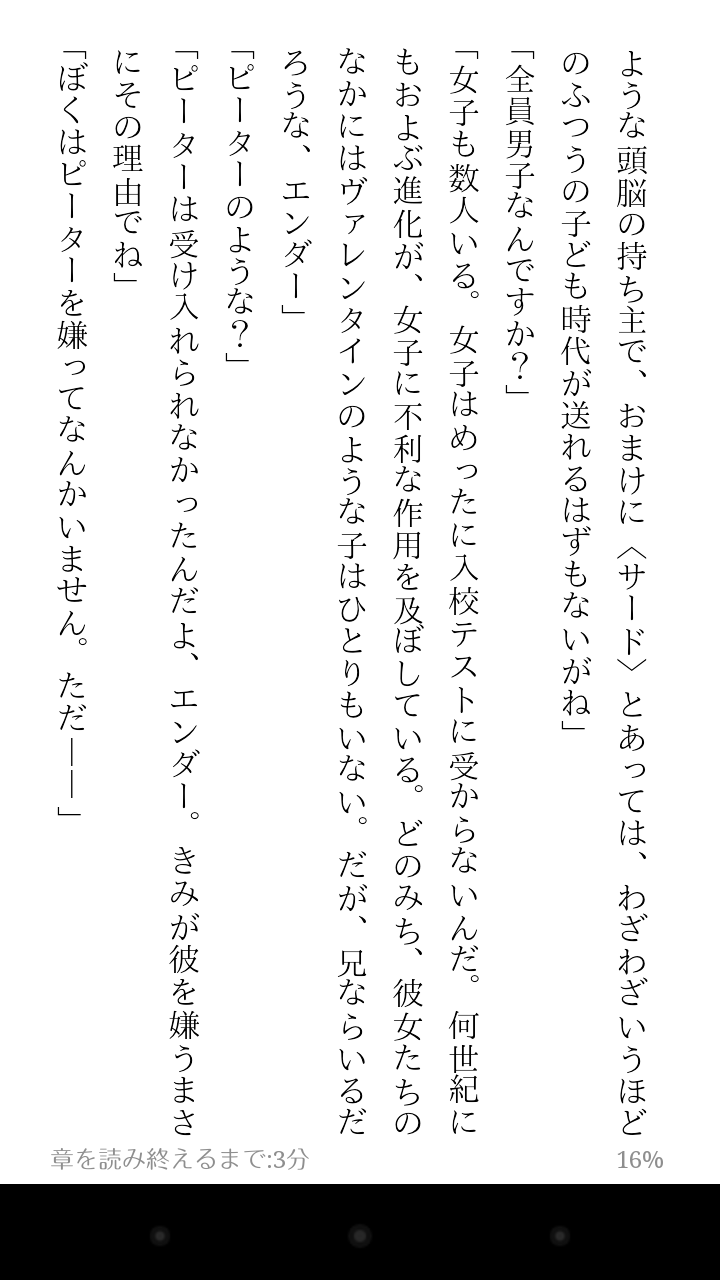 ような頭脳の持ち主で、おまけに〈サード〉とあっては、わざわざいうほど
のふつうの子ども時代が送れるはずもないがね」
「全員男子なんですか？」
「女子も数人いる。女子はめったに入校テストに受からないんだ。何世紀に
もおよぶ進化が、女子に不利な作用を及ぼしている。どのみち、彼女たちの
なかにはヴァレンタインのような子はひとりもいない。だが、兄ならいるだ
ろうな、エンダー」
「ピーターのような？」
「ピーターは受け入れられなかったんだよ、エンダー。きみが彼を嫌うまさ
にその理由でね」
「ぼくはピーターを嫌ってなんかいません。ただ――」
章を読み終えるまで:3分
16%